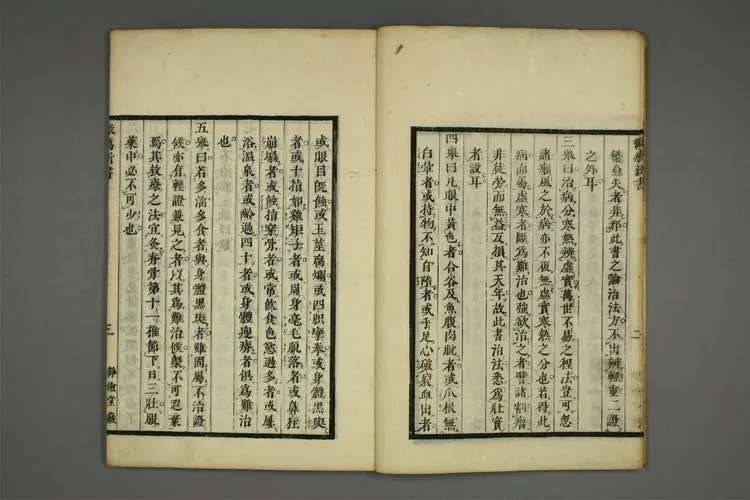 繁愈失者非邪此書之論治法方不出辨輕重二證
之外耳
三舉曰治病分寒熱辨虛實萬世不易之徑法豈可忽
諸癩風之於病亦不復無虛實寒熱之分也若得此
病而屬虛寒者斷為難治也強欲治之者譬諸割瘤
非徒勞而無益反損其天年故此書治法悉為壯實
者設耳
四舉曰凡眼中黃色者合谷及魚腹肉脫者或爪根無
白暈者或持物不知自墮者或手足心破裂血出者
或眼目既蝕或玉莖腐爛或四肢攣拳或身體黑斑
者或十指如雞距子者或周身毫毛脫落者或鼻柱
崩塌者或蝕指棄骨者或常飲食色慾過多者或屢
浴溫泉者或齡過四十者或身體瘦瘠者俱為難治
也
五舉曰若多淫多食者與身體黑斑者雖固屬不治證
候亦有輕證兼見之者以其為難治候槩不可忍棄
焉其救療之法宜灸脊骨第十一椎節下日三壯服
藥中必不可少也
三
靜儉堂藏